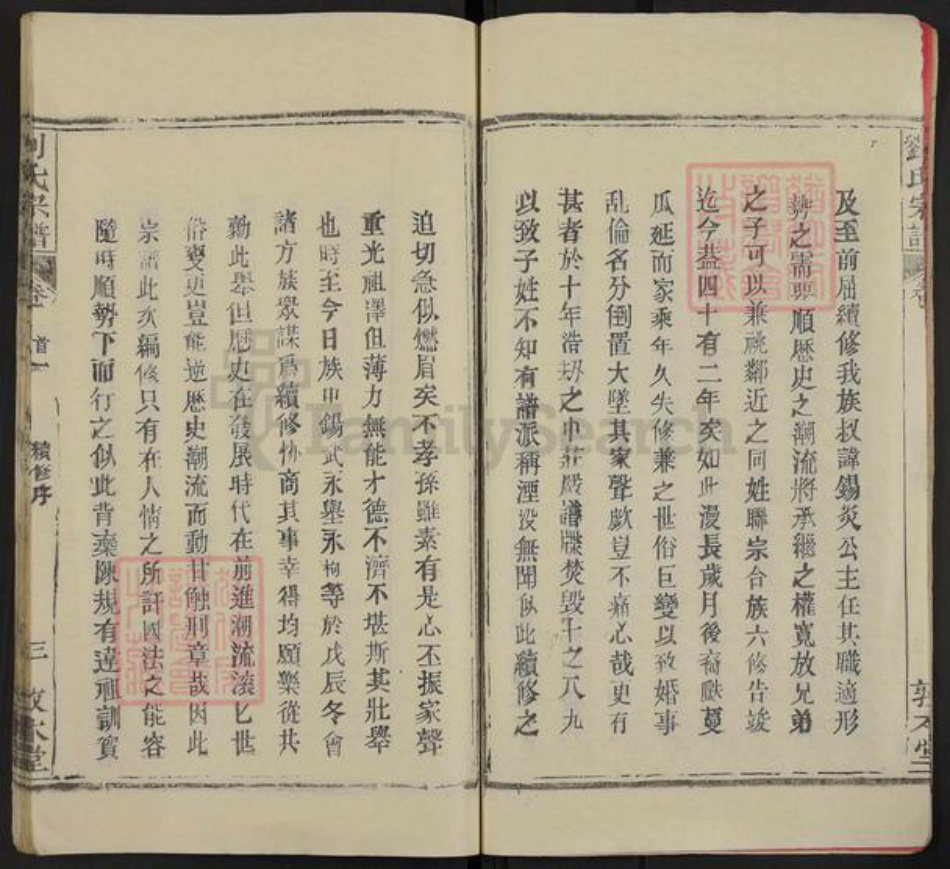 劉氏宗譜
卷
敦本堂
及至前屆續修我族叔諱錫炎公主任其職適形
勢之需要順歷史之潮流將承繼之權寬放兄弟
之子可以兼祧鄰近之同姓聯宗合族六修告竣
迄今葢四十有二年矣如此漫長歲月後裔蕃蔓
瓜延而家乘年久失修兼之世俗巨變以致婚事
乱倫名分倒置大墜其家聲歟豈不痛心哉更有
甚者於十年浩劫之中莊嚴譜牒焚毀十之八九
以致子姓不知有譜派稱湮没無聞似此續修之
迫切急似燃眉矣不孝孫雖素有是心丕振家聲
重光祖澤但薄力無能才德不濟不堪斯其壯舉
也時至今日族中錫武永舉永枸等於戊辰冬會
諸方族眾謀爲續修協商其事幸得均願樂從共
勷此舉但歷史在發展時代在前進潮流滚匕世
俗變更豈能逆歷史潮流而動甘触刑章哉因此
宗譜此次編修只有在人情之所許國法之能容
隨時順勢下而行之似此背棄陳規有違祖訓實
劉氏宗譜
卷首一
續修序
三
敦本堂
FamilySearch